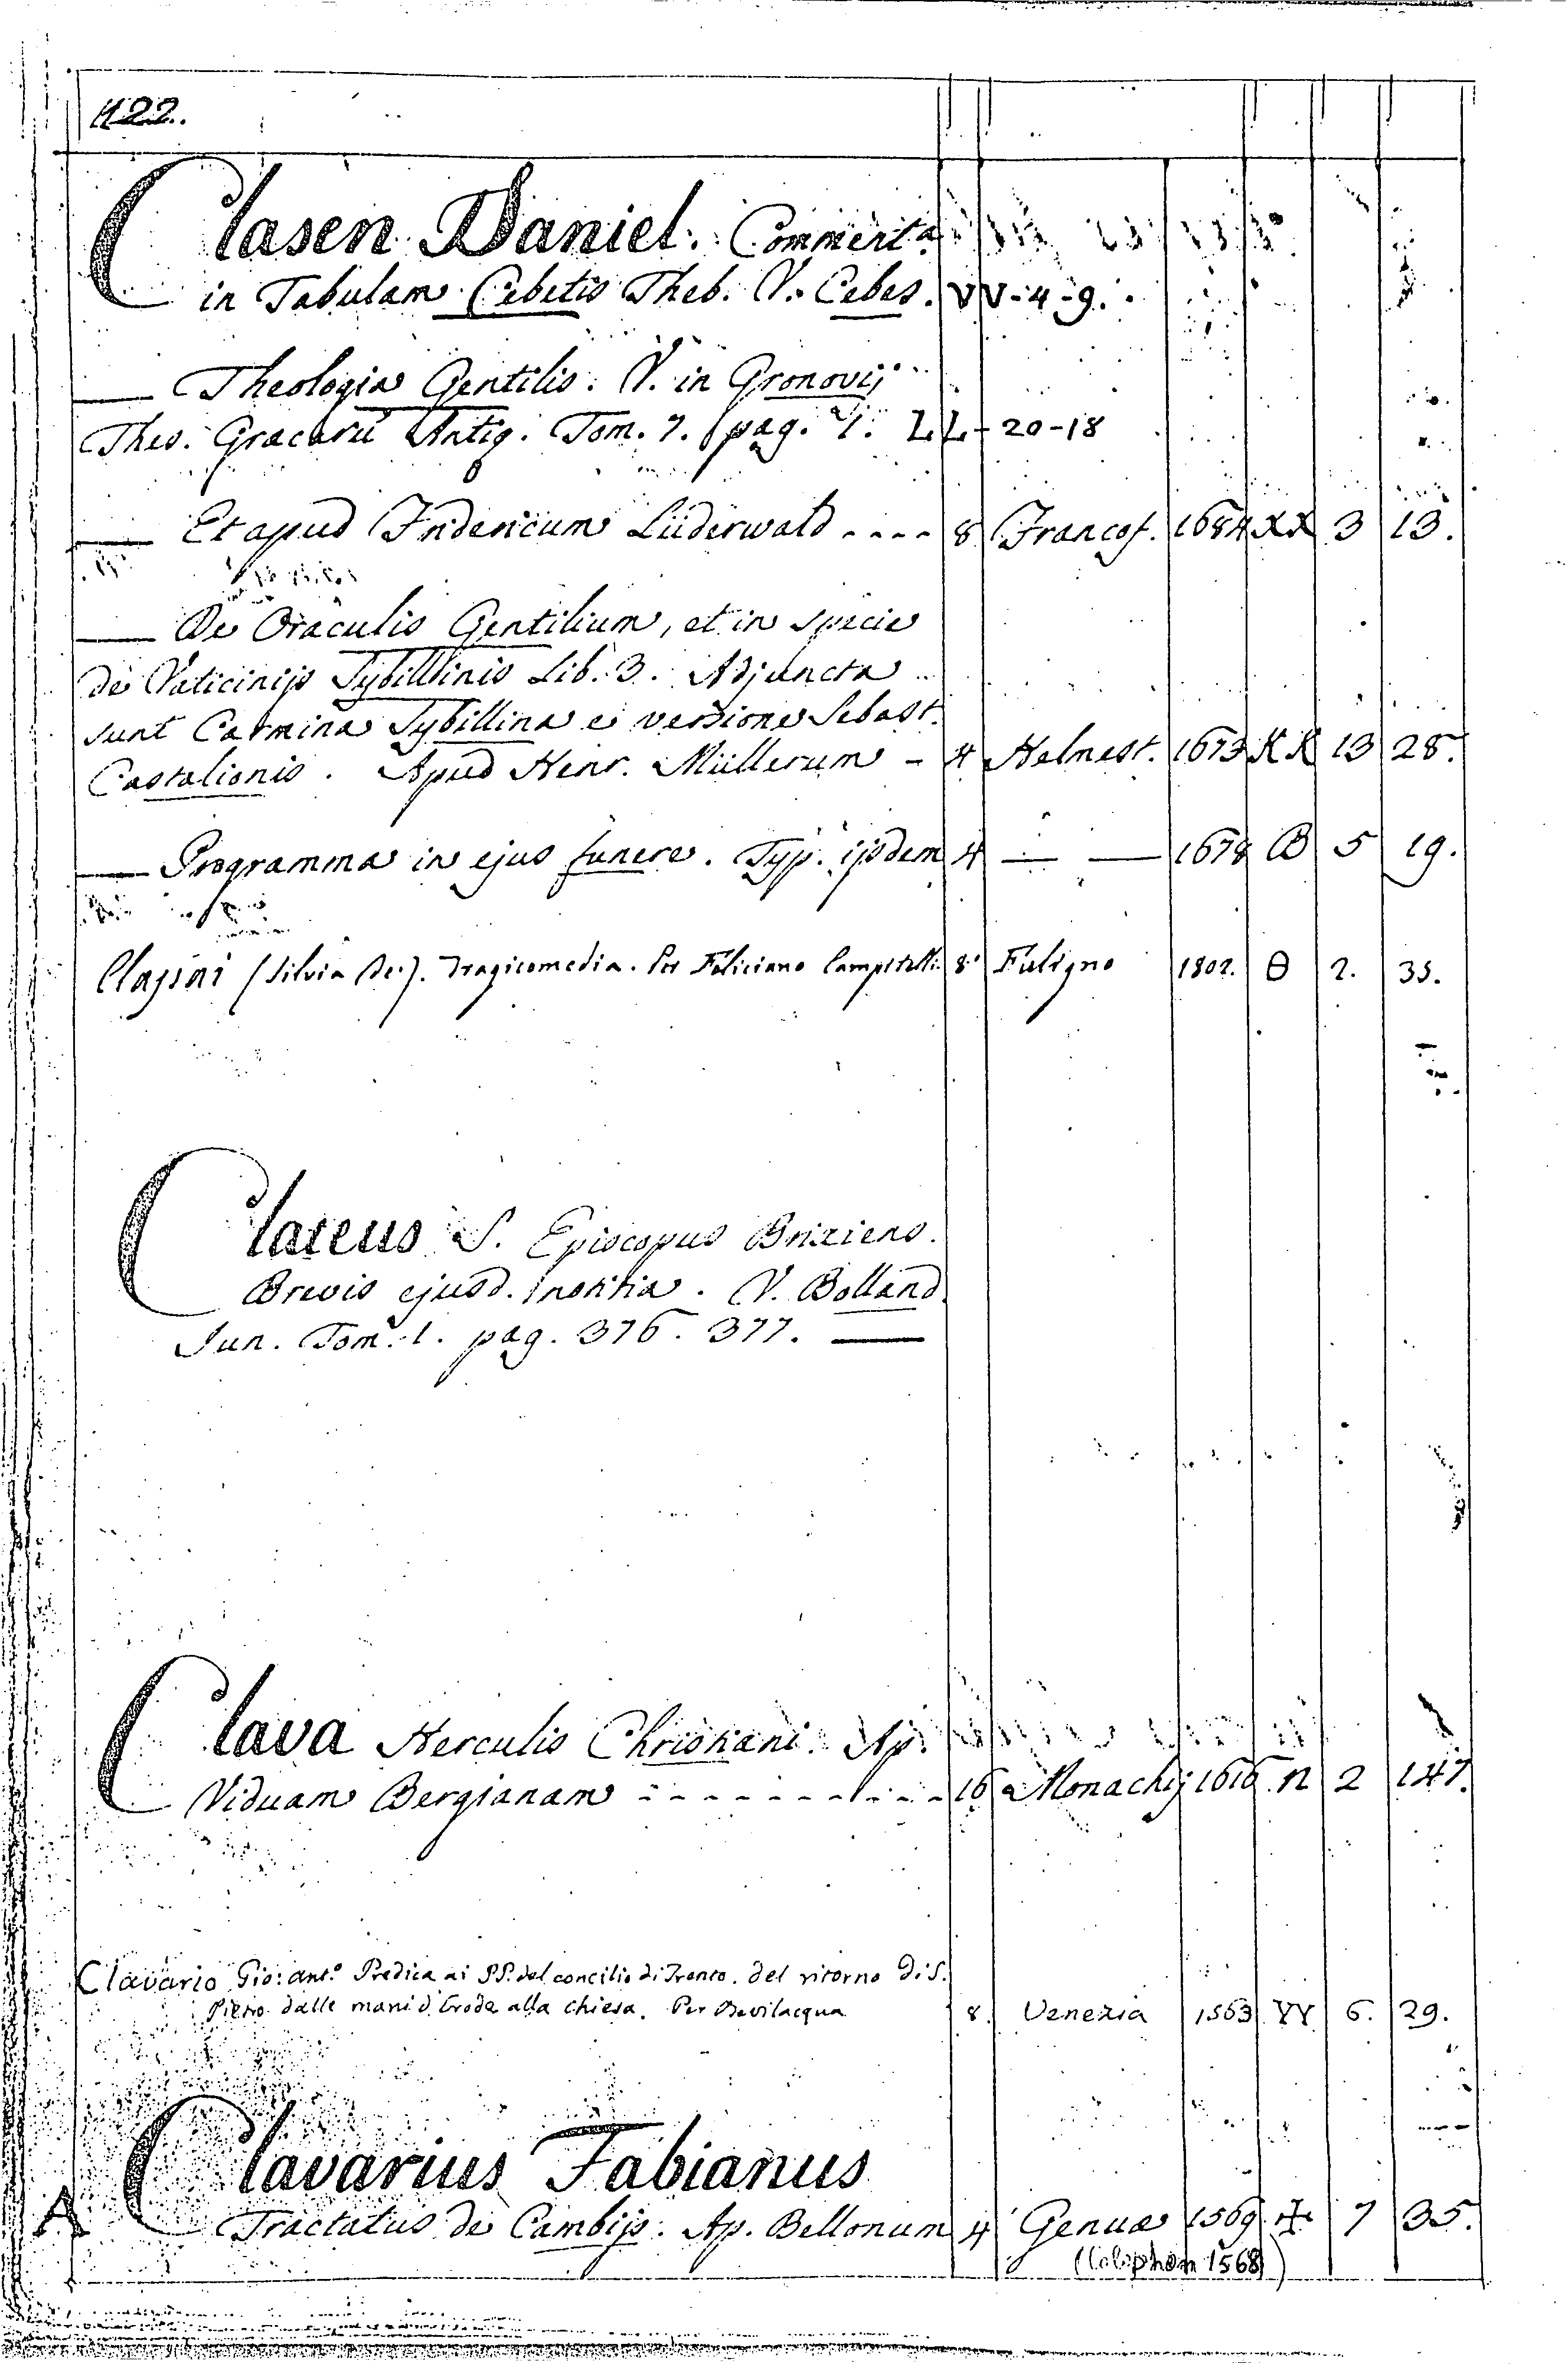 422.
Clasen Daniel. Comment.a
in Tabulam Cebetis Theb. V. Cebes. VV-4-9.
— Theologia Gentilis. V. in Gronovij
Thes. Græcarū Antiq. Tom. 7. pag. 1. LL-20-18
— Et apud Fridericum Lüderwald ---- 8 Francof. 1684 XX 3 13.
— De Oraculis Gentilium, et in specie
de Vaticinijs Sybillinis Lib. 3. Adjuncta
sunt Carmina Sybillina e versione Sebast.
Castalionis. Apud Henr. Müllerum - 4 Helmest. 1673 KK 13 28.
— Programma in ejus funere. Typ. ijsdem 4 — — 1678 B 5 19.
Classini (Silvia de'). Tragicomedia. Per Feliciano Campitelli 8 Fuligno 1802. θ 2. 35.
Clateus S. Episcopus Brixiens.
Brevis ejusd. notitia. V. Bolland
Jun. Tom. 1. pag. 376. 377. —
Clava Herculis Christiani. Ap.
Viduam Bergianam ---------- 16 Monachij 1616 n 2 147.
Clavario Gio: Ant.o Predica ai PP. del concilio di Trento. del ritorno di S.
Pietro dalle mani d'Erode alla chiesa. Per Bevilacqua 8. Venezia 1563 YY 6. 29.
Clavarius Fabianus
A Tractatus de Cambijs. Ap. Bellonum 4 Genuæ 1569 ✠ 7 35.
(Colophon 1568)